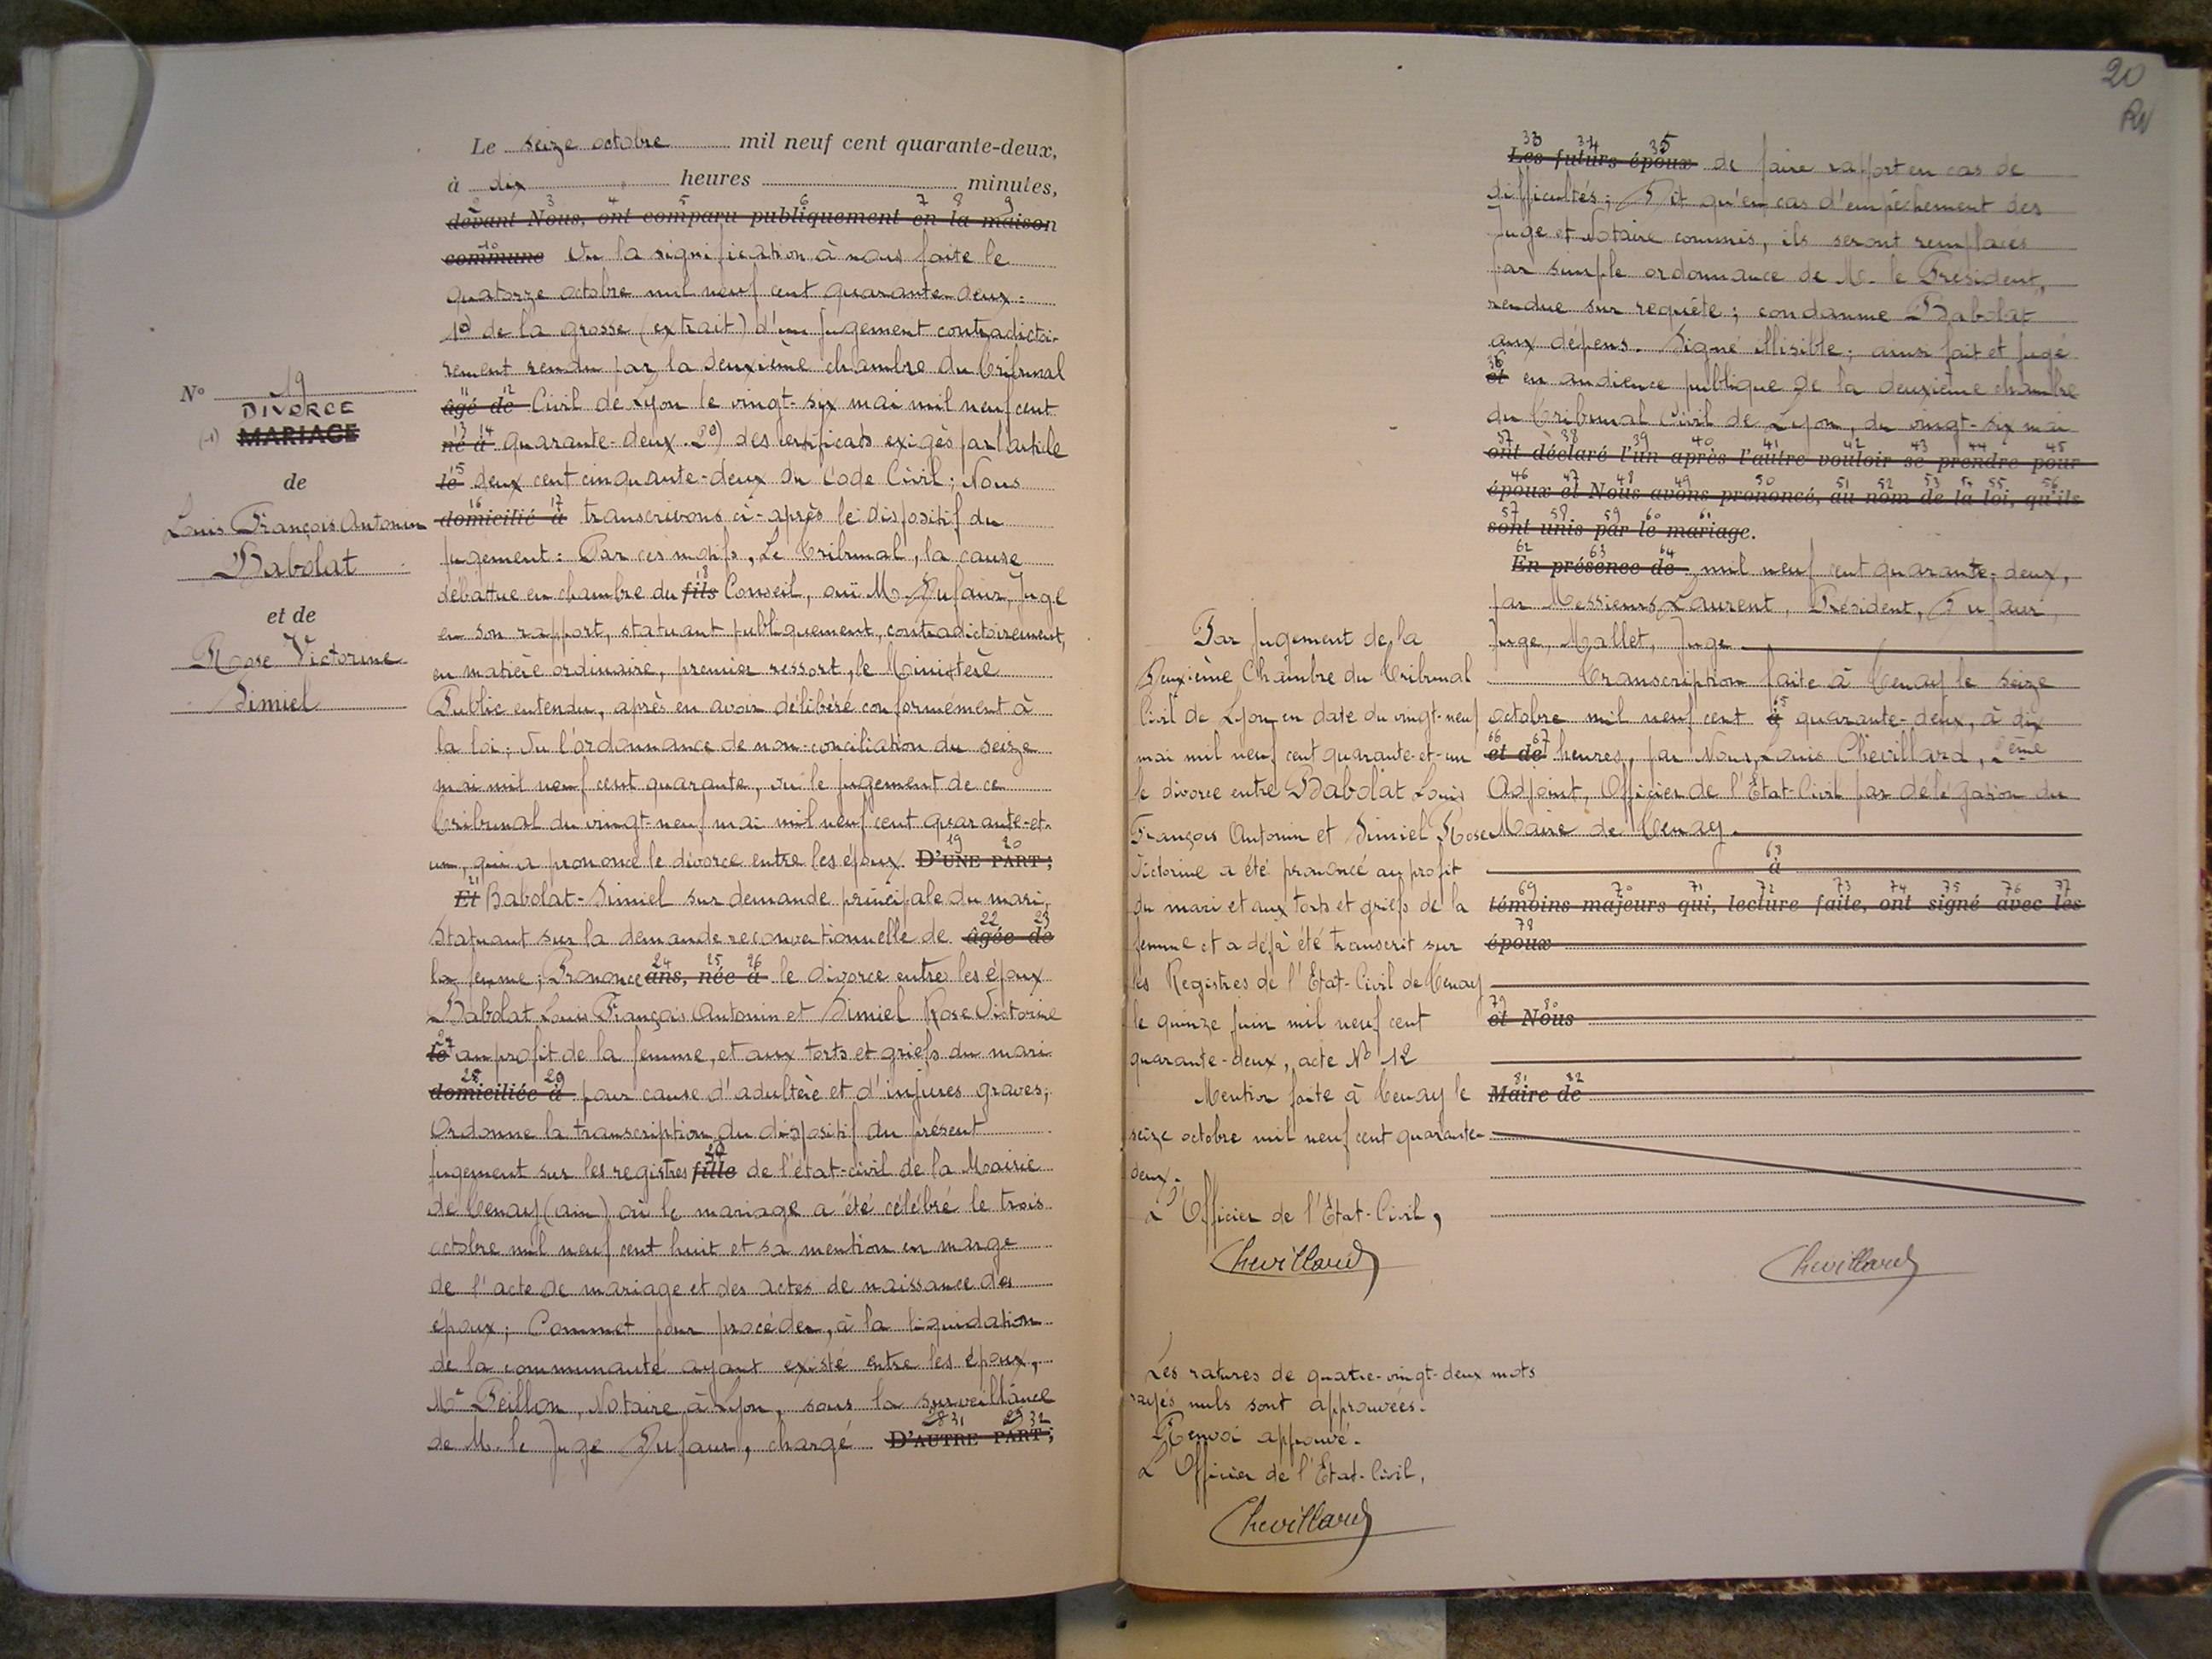 N° 19
DIVORCE
(-1) MARIAGE
de
Louis François Antonin
Babolat
et de
Rose Victorine
Simiel
Le seize octobre mil neuf cent quarante-deux,
à dix heures minutes,
2 3 4 5 6 7 8 9
devant Nous, ont comparu publiquement en la maison
10
commune Vu la signification à nous faite le
quatorze octobre mil neuf cent quarante-deux:
1°) de la grosse (extrait) d'un jugement contradictoi-
rement rendu par la deuxième chambre du Tribunal
11 12
âgé de Civil de Lyon le vingt-six mai mil neuf cent
13 14
né à quarante-deux. 2°) des certificats exigés par l'article
15
le deux cent cinquante-deux du Code Civil; Nous
16 17
domicilié à transcrivons ci-après le dispositif du
jugement: Par ces motifs, Le Tribunal, la cause
18
débattue en chambre du fils Conseil, ouï M. Dufaur, Juge
en son rapport, statuant publiquement, contradictoirement,
en matière ordinaire, premier ressort, le Ministère
Public entendu, après en avoir délibéré conformément à
la loi; Vu l'ordonnance de non-conciliation du seize
mai mil neuf cent quarante, vu le jugement de ce
Tribunal du vingt-neuf mai mil neuf cent quarante-et-
19 20
un, qui a prononcé le divorce entre les époux D'UNE PART;
21
Et Babolat-Simiel sur demande principale du mari,
22 23
Statuant sur la demande reconventionnelle de âgée de
24 25 26
la femme; Prononce ans, née à le divorce entre les époux
Babolat Louis François Antonin et Simiel Rose Victorine
27
le au profit de la femme, et aux torts et griefs du mari
28 29
domiciliée à pour cause d'adultère et d'injures graves;
Ordonne la transcription du dispositif du présent
30
jugement sur les registres fille de l'état-civil de la Mairie
de Tenay (ain) où le mariage a été célébré le trois
octobre mil neuf cent huit et sa mention en marge
de l'acte de mariage et des actes de naissance des
époux; Commet pour procéder, à la liquidation
de la communauté ayant existé entre les époux,
Me Peillon, Notaire à Lyon, sous la surveillance
31 32
de M. le Juge Dufaur, chargé D'AUTRE PART;
20
RV
33 34 35
Les futurs époux de faire rapport en cas de
difficultés; Dit qu'en cas d'empêchement des
Juge et Notaire commis, ils seront remplacés
par simple ordonnance de M. le Président,
rendue sur requête; condamne Babolat
aux dépens. Signé illisible; ainsi fait et jugé
36
et en audience publique de la deuxième chambre
du Tribunal Civil de Lyon, du vingt-six mai
37 38 39 40 41 42 43 44 45
ont déclaré l'un après l'autre vouloir se prendre pour
46 47 48 49 50 51 52 53 54 55 56
époux et Nous avons prononcé, au nom de la loi, qu'ils
57 58 59 60 61
sont unis par le mariage.
62 63 64
En présence de mil neuf cent quarante-deux,
par Messieurs Laurent, Président, Dufaur,
Juge, Mallet, Juge
Transcription faite à Tenay le seize
65
octobre mil neuf cent à quarante-deux, à dix
66 67
et de heures, par Nous, Louis Chevillard, 2ème
Adjoint, Officier de l'Etat-Civil par délégation du
Maire de Tenay.
68
à
69 70 71 72 73 74 75 76 77
témoins majeurs qui, lecture faite, ont signé avec les
78
époux
79 80
et Nous
81 82
Maire de
Chevillard
Par jugement de la
Deuxième Chambre du Tribunal
Civil de Lyon en date du vingt-neuf
mai mil neuf cent quarante-et-un
le divorce entre Babolat Louis
François Antonin et Simiel Rose
Victorine a été prononcé au profit
du mari et aux torts et griefs de la
femme et a déjà été transcrit sur
les Registres de l'Etat-Civil de Tenay
le quinze juin mil neuf cent
quarante-deux, acte N° 12
Mention faite à Tenay le
seize octobre mil neuf cent quarante-
deux.
L'Officier de l'Etat-Civil,
Chevillard
Les ratures de quatre-vingt-deux mots
rayés nuls sont approuvées.
Renvoi approuvé.
L'Officier de l'Etat-Civil,
Chevillard